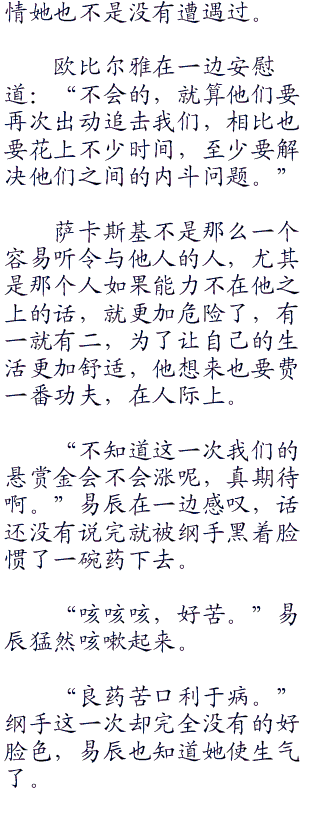 情她也不是没有遭遇过。
欧比尔雅在一边安慰
道：“不会的，就算他们要
再次出动追击我们，相比也
要花上不少时间，至少要解
决他们之间的内斗问题。”
萨卡斯基不是那么一个
容易听令与他人的人，尤其
是那个人如果能力不在他之
上的话，就更加危险了，有
一就有二，为了让自己的生
活更加舒适，他想来也要费
一番功夫，在人际上。
“不知道这一次我们的
悬赏金会不会涨呢，真期待
啊。”易辰在一边感叹，话
还没有说完就被纲手黑着脸
惯了一碗药下去。
“咳咳咳，好苦。”易
辰猛然咳嗽起来。
“良药苦口利于病。”
纲手这一次却完全没有的好
脸色，易辰也知道她使生气
了。